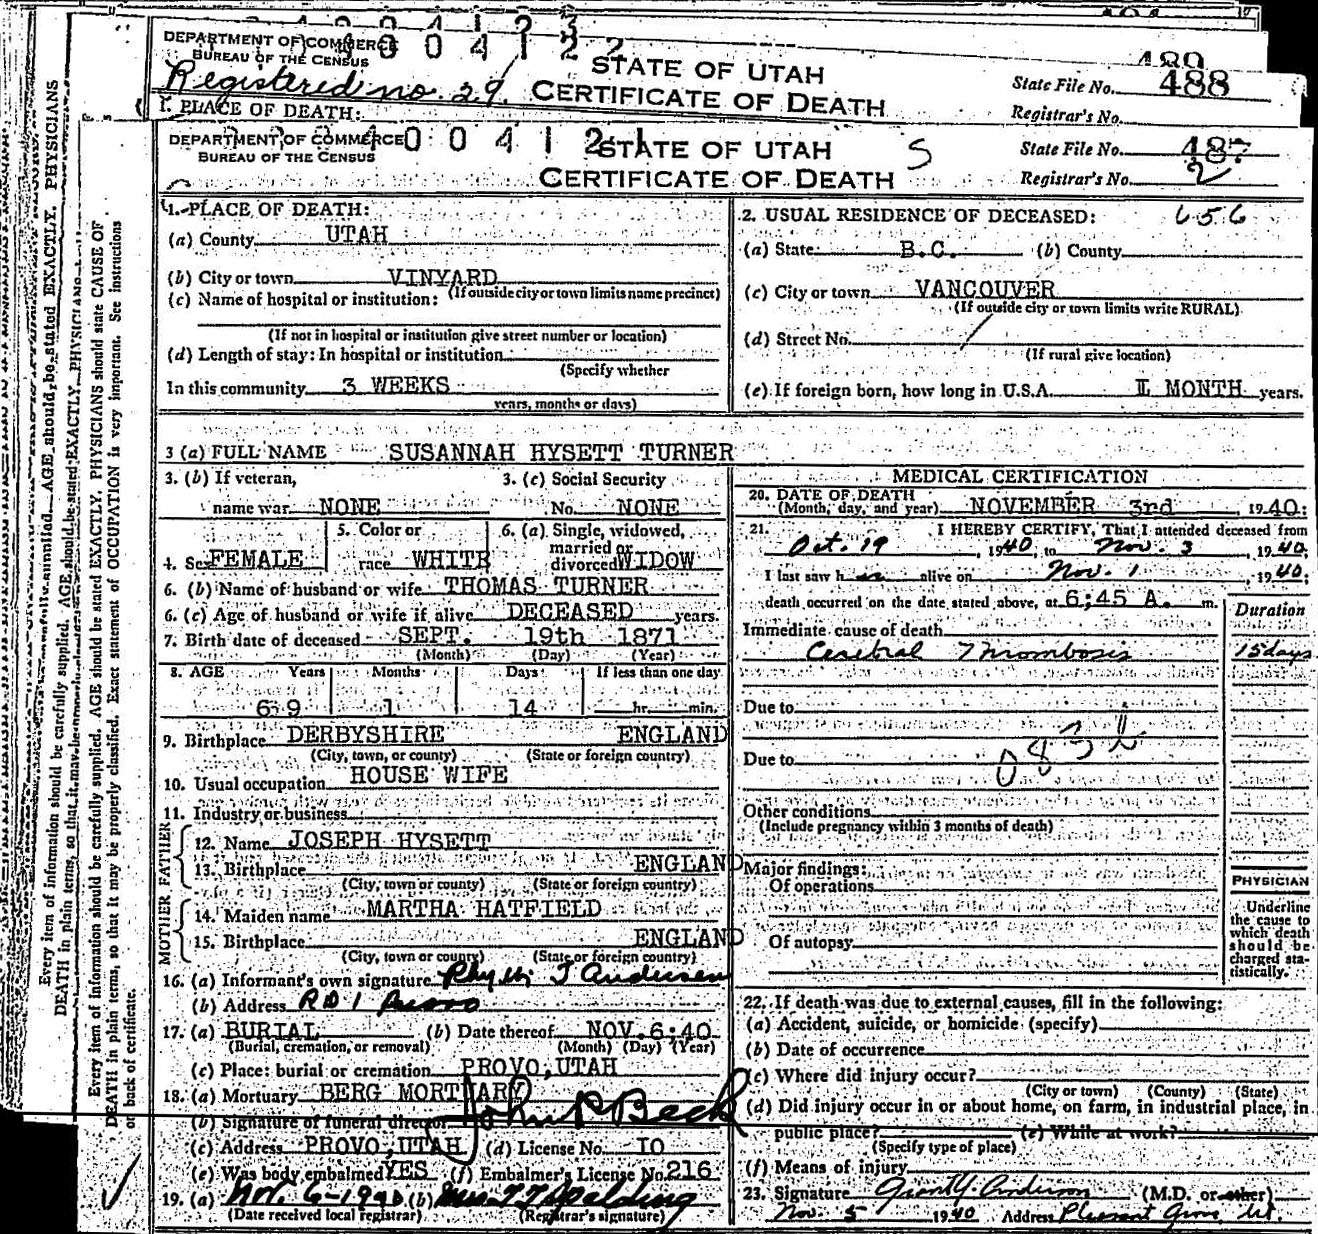 DEPARTMENT OF COMMERCE
BUREAU OF THE CENSUS
STATE OF UTAH
CERTIFICATE OF DEATH
Registered no. 29.
State File No. 488
Registrar's No.
1. PLACE OF DEATH:
DEPARTMENT OF COMMERCE
BUREAU OF THE CENSUS
STATE OF UTAH
CERTIFICATE OF DEATH
S
State File No. 487
Registrar's No. 2
1. PLACE OF DEATH:
(a) County UTAH
(b) City or town VINYARD
(If outside city or town limits name precinct)
(c) Name of hospital or institution:
(If not in hospital or institution give street number or location)
(d) Length of stay: In hospital or institution
(Specify whether
In this community 3 WEEKS
years, months or days)
2. USUAL RESIDENCE OF DECEASED: 656
(a) State B.C. (b) County
(c) City or town VANCOUVER
(If outside city or town limits write RURAL)
(d) Street No.
(If rural give location)
(e) If foreign born, how long in U.S.A. I MONTH years.
3 (a) FULL NAME SUSANNAH HYSETT TURNER
3. (b) If veteran,
name war NONE
3. (c) Social Security
No. NONE
4. Sex FEMALE
5. Color or
race WHITE
6. (a) Single, widowed,
married or
divorced WIDOW
6. (b) Name of husband or wife THOMAS TURNER
6. (c) Age of husband or wife if alive DECEASED years.
7. Birth date of deceased SEPT. 19th 1871
(Month) (Day) (Year)
8. AGE Years Months Days If less than one day
69 1 14 hr. min.
9. Birthplace DERBYSHIRE ENGLAND
(City, town, or county) (State or foreign country)
10. Usual occupation HOUSE WIFE
11. Industry or business
FATHER
12. Name JOSEPH HYSETT
13. Birthplace ENGLAND
(City, town or county) (State or foreign country)
MOTHER
14. Maiden name MARTHA HATFIELD
15. Birthplace ENGLAND
(City, town or county) (State or foreign country)
16. (a) Informant's own signature Phyllis T Andersen
(b) Address RD 1 Provo
17. (a) BURIAL (b) Date thereof NOV. 6:40
(Burial, cremation, or removal) (Month) (Day) (Year)
(c) Place: burial or cremation PROVO, UTAH
18. (a) Mortuary BERG MORTUARY
(b) Signature of funeral director John R Beck
(c) Address PROVO, UTAH (d) License No. IO
(e) Was body embalmed YES (f) Embalmer's License No. 216
19. (a) Nov. 6-1940 (b) Mrs. T T Spalding
(Date received local registrar) (Registrar's signature)
MEDICAL CERTIFICATION
20. DATE OF DEATH
(Month, day, and year) NOVEMBER 3rd, 1940;
21. I HEREBY CERTIFY, That I attended deceased from
Oct. 19, 1940, to Nov. 3, 1940;
I last saw her alive on Nov. 1, 1940;
death occurred on the date stated above, at 6;45 A. m.
Duration
Immediate cause of death
Cerebral Thrombosis 15 days
Due to
Due to
Other conditions
(Include pregnancy within 3 months of death)
Major findings:
Of operations
Of autopsy
PHYSICIAN
Underline
the cause to
which death
should be
charged sta-
tistically.
22. If death was due to external causes, fill in the following:
(a) Accident, suicide, or homicide (specify)
(b) Date of occurrence
(c) Where did injury occur?
(City or town) (County) (State)
(d) Did injury occur in or about home, on farm, in industrial place, in
public place? (e) While at work?
(Specify type of place)
(f) Means of injury
23. Signature Grant Y. Anderson (M.D. or other)
Nov. 5 1940 Address Pleasant Grove, Ut.
Every item of information should be carefully supplied. AGE should be stated EXACTLY. PHYSICIANS should state CAUSE OF
DEATH in plain terms, so that it may be properly classified. Exact statement of OCCUPATION is very important. See instructions
on back of certificate.